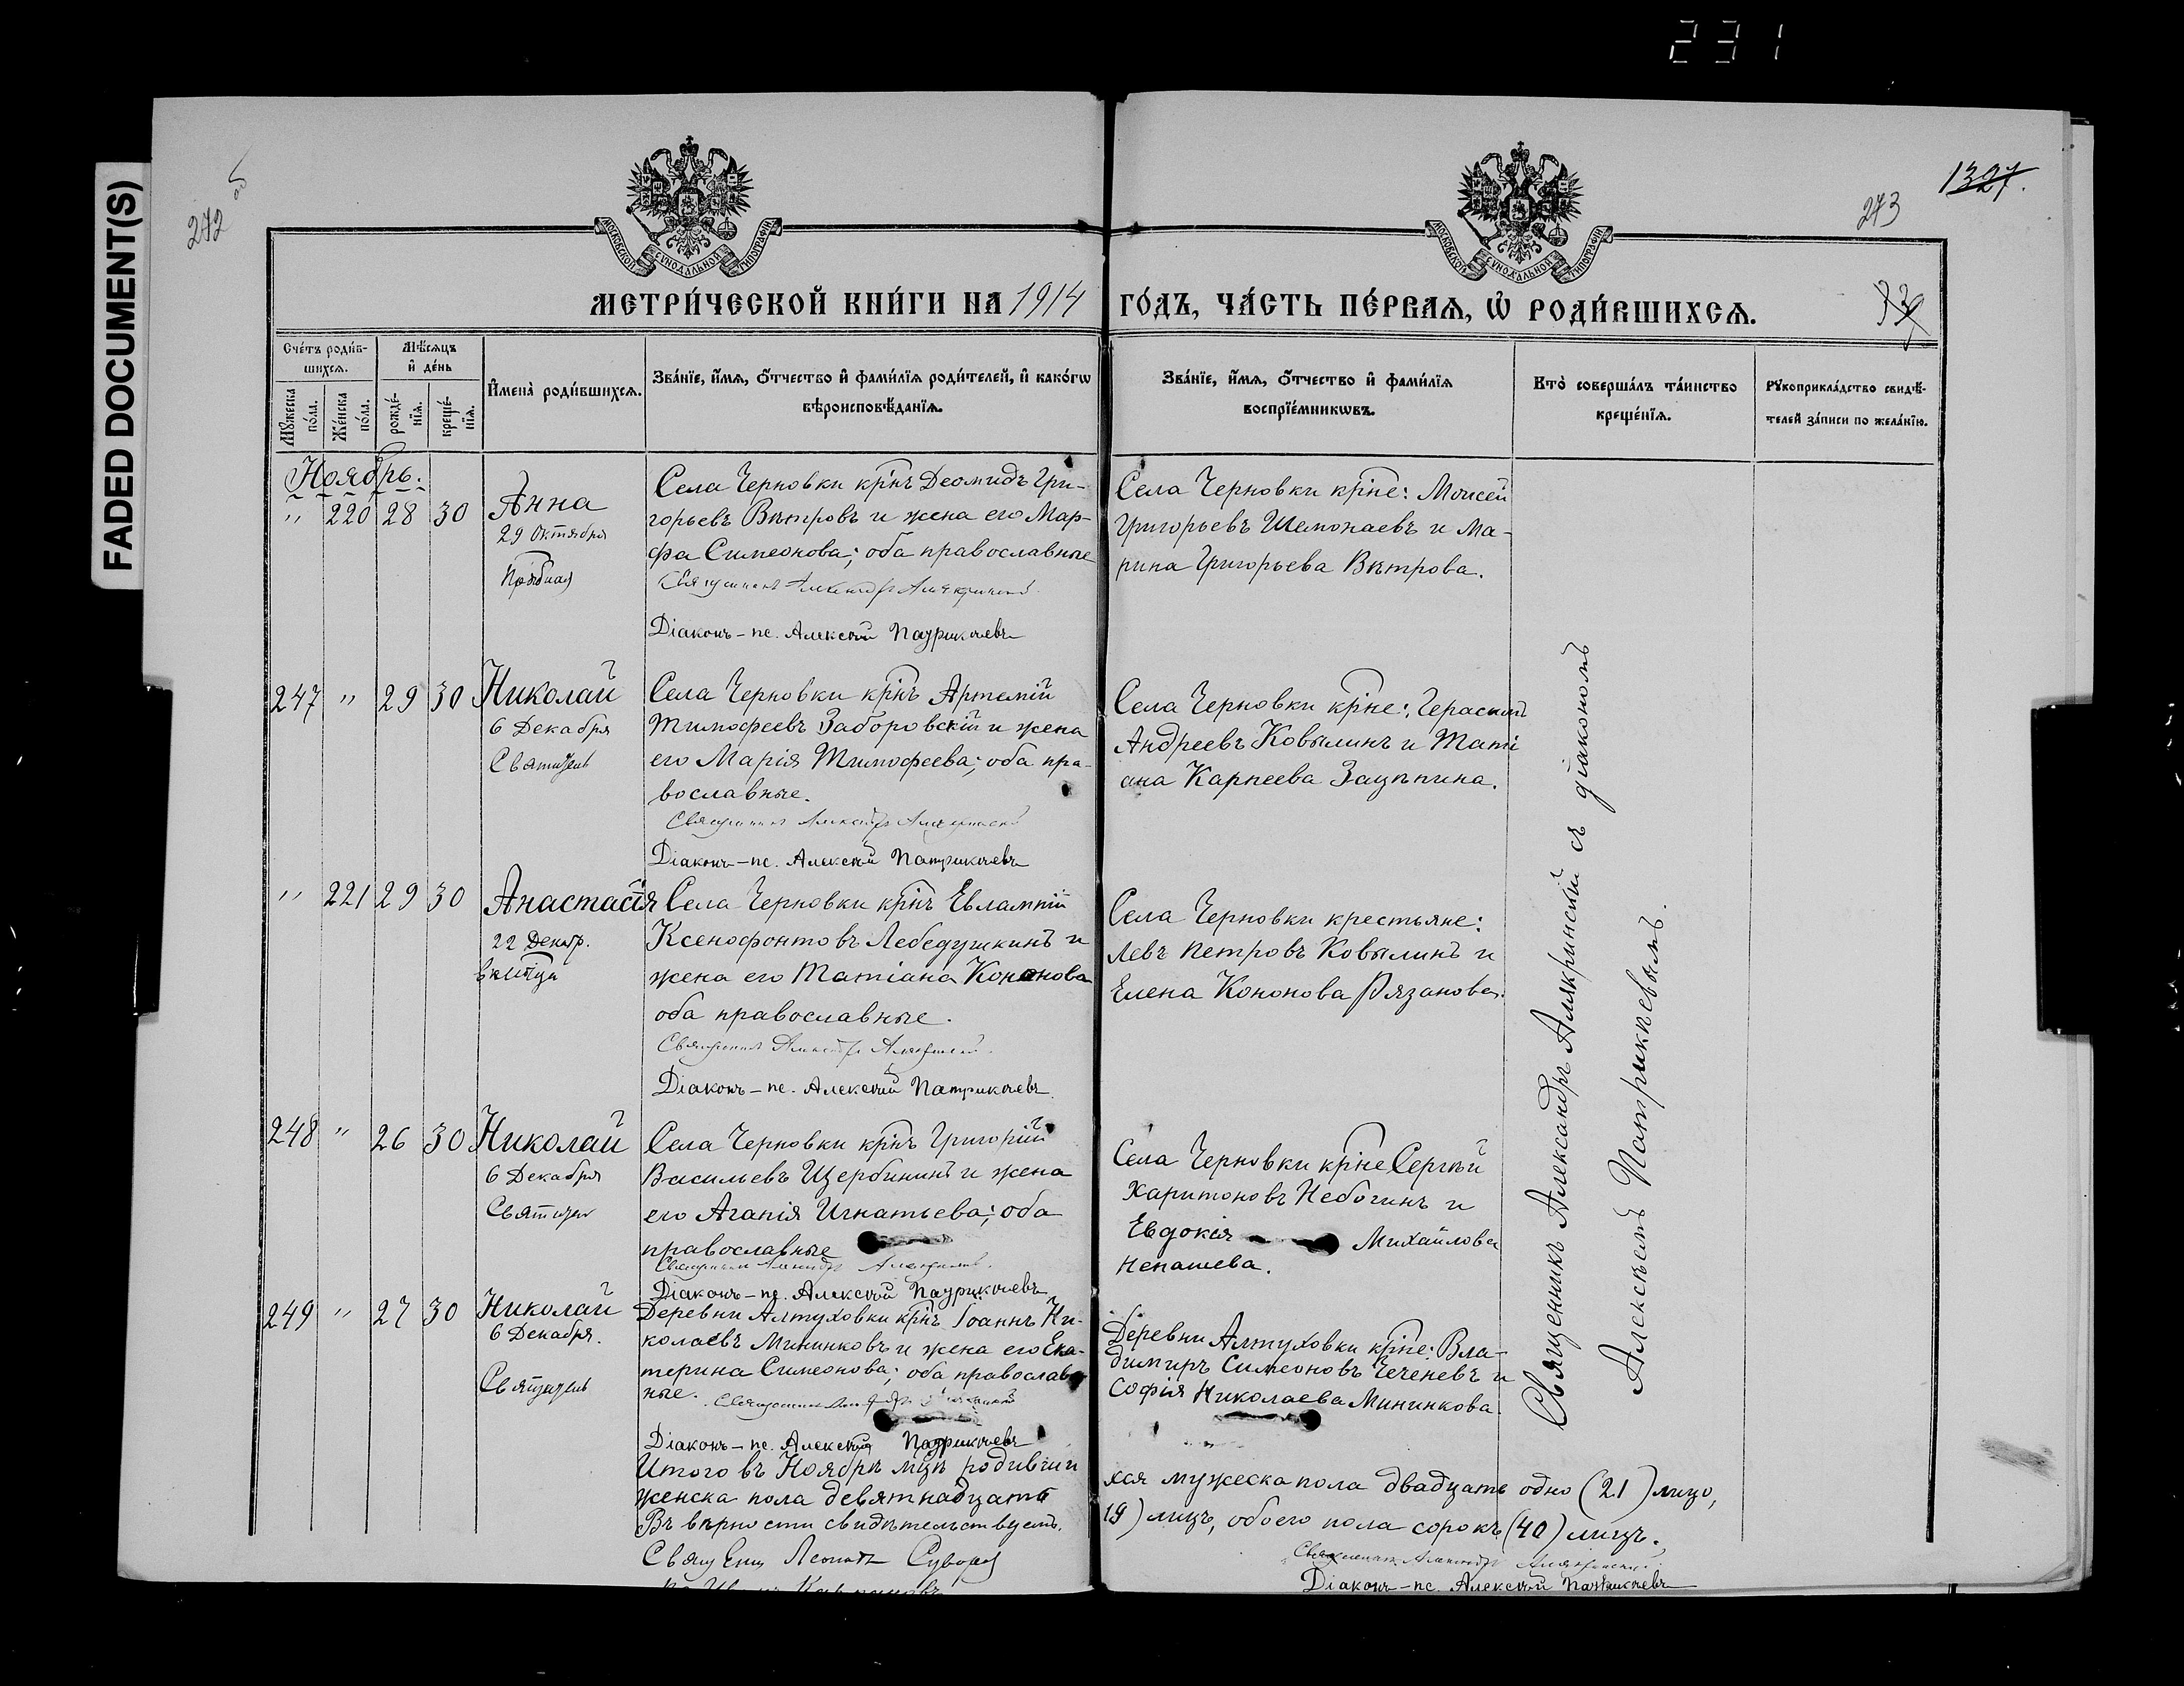 231
FADED DOCUMENT(S)
272 об
1327.
273
МОСКОВСКОЙ СѴНОДАЛЬНОЙ ТИПОГРАФІИ
МОСКОВСКОЙ СѴНОДАЛЬНОЙ ТИПОГРАФІИ
МЕТРИ́ЧЕСКОЙ КНИ́ГИ НА 1914 ГО́ДЪ, ЧА́СТЬ ПЕ́РВАѦ, Ѡ҆ РОДИ́ВШИХСѦ.
Сче́тъ роди́в-
шихсѧ.
Мꙋ́жеска по́ла.
Же́нска по́ла.
Мѣ́сѧцъ
и҆ де́нь
рожде́-
нїѧ.
креще́-
нїѧ.
И҆мена̀ роди́вшихсѧ.
Зва́нїе, и҆́мѧ, ѻ҆́тчество и҆ фами́лїѧ роди́телей, и҆ како́гѡ
вѣроисповѣ́данїѧ.
Зва́нїе, и҆́мѧ, ѻ҆́тчество и҆ фами́лїѧ
воспрїе́мникѡвъ.
Кто̀ соверша́лъ та́инство
креще́нїѧ.
Рꙋкоприкла́дство свидѣ́-
телей за́писи по жела́нїю.
Ноябрь.
" 220 28 30 Анна
29 Октября
Села Черновки кр̅нъ Деомидъ Гри-
горьевъ Вѣтровъ и жена его Мар-
фа Симеонова; оба православные
Священникъ Александръ Алякринскій
Діаконъ-пс. Алексѣй Патрикѣевъ
Села Черновки кр̅не: Моисей
Григорьевъ Шемонаевъ и Ма-
рина Григорьева Вѣтрова.
247 " 29 30 Николай
6 Декабря
Святитель
Села Черновки кр̅нъ Артемій
Тимофеевъ Заборовскій и жена
его Марія Тимофеева; оба пра-
вославные.
Священникъ Александръ Алякринскій
Діаконъ-пс. Алексѣй Патрикѣевъ
Села Черновки кр̅не: Герасимъ
Андреевъ Ковылинъ и Таті
ана Карпеева Зацѣпина.
" 221 29 30 Анастасія
22 Декабр.
Села Черновки кр̅нъ Евлампій
Ксенофонтовъ Лебедушкинъ и
жена его Татіана Кононова
оба православные.
Священникъ Александръ Алякринскій
Діаконъ-пс. Алексѣй Патрикѣевъ
Села Черновки крестьяне:
Левъ Петровъ Ковылинъ и
Елена Кононова Рязанова.
248 " 26 30 Николай
6 Декабря
Святитель
Села Черновки кр̅нъ Григорій
Васильевъ Щербининъ и жена
его Агапія Игнатьева; оба
православные
Священникъ Александръ Алякринскій
Діаконъ-пс. Алексѣй Патрикѣевъ
Села Черновки кр̅не Сергѣй
Харитоновъ Небогинъ и
Евдокія Михайлова
Ненашева.
249 " 27 30 Николай
6 Декабря.
Святитель
Деревни Алтуховки кр̅нъ Іоаннъ Ни-
колаевъ Мининковъ и жена его Ека-
терина Симеонова; оба православ-
ные.
Священникъ Александръ Алякринскій
Діаконъ-пс. Алексѣй Патрикѣевъ
Деревни Алтуховки кр̅не: Вла-
димиръ Симеоновъ Чеченевъ и
Софія Николаева Мининкова.
Священникъ Александръ Алякринскій съ діакономъ
Алексѣемъ Патрикѣевымъ.
Итого въ Ноябрѣ мц̅ѣ родивши хся мужеска пола двадцать одно (21) лицо,
женска пола девятнадцать 19) лицъ, обоего пола сорокъ (40) лицъ.
Въ вѣрности свидѣтельствуемъ.
Священникъ Александръ Алякринскій
Діаконъ-пс. Алексѣй Патрикѣевъ